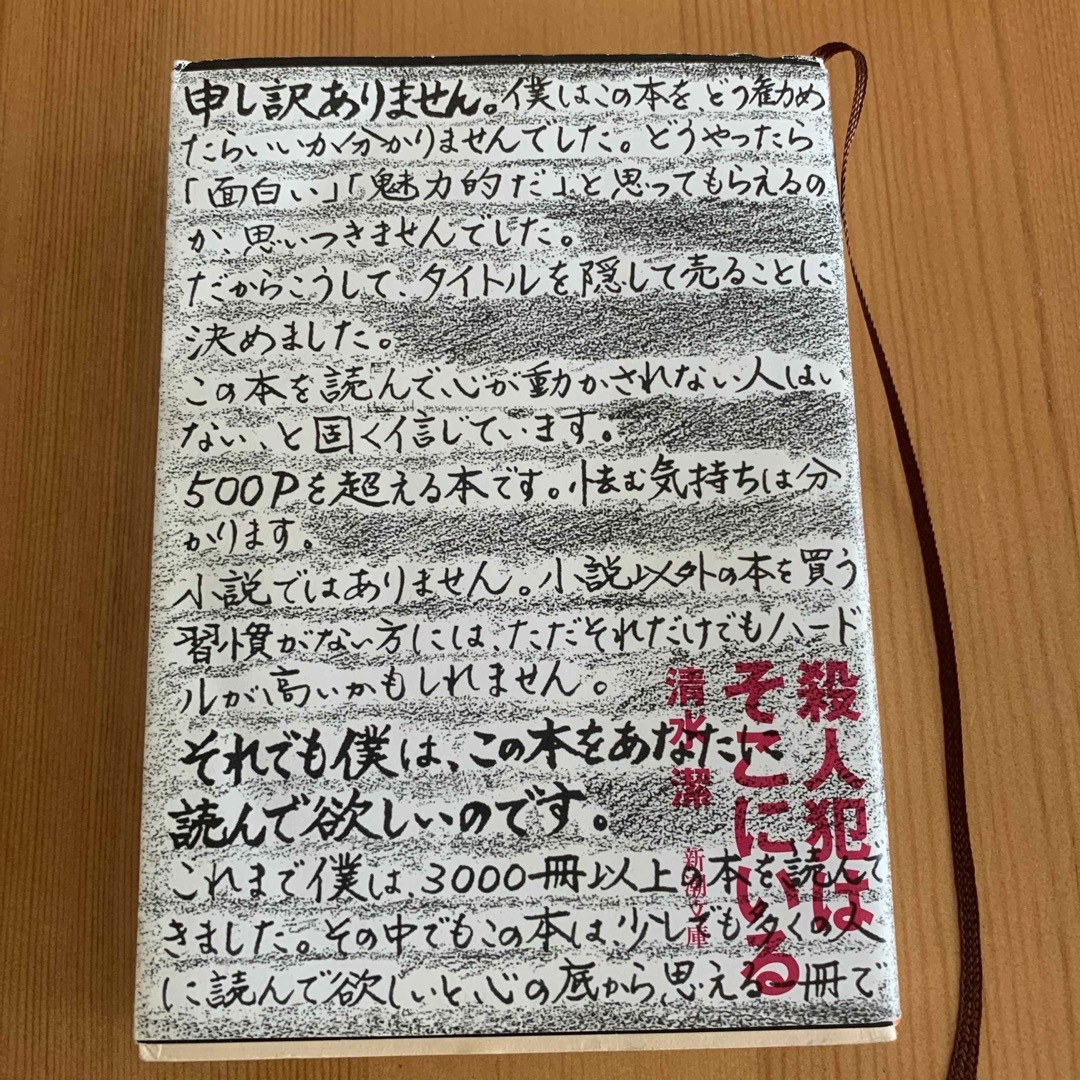 申し訳ありません。僕はこの本を、どう勧め
たらいいか分かりませんでした。どうやったら
「面白い」「魅力的だ」と思ってもらえるの
か、思いつきませんでした。
だからこうして、タイトルを隠して売ることに
決めました。
この本を読んで、心が動かされない人はい
ない、と固く信じています。
500Pを超える本です。怯む気持ちは分
かります。
小説ではありません。小説以外の本を買う
習慣がない方には、ただそれだけでもハード
ルが高いかもしれません。
それでも僕は、この本をあなたに
読んで欲しいのです。
これまで僕は、3000冊以上の本を読んで
きました。その中でもこの本は、少しでも多くの人
に読んで欲しいと、心の底から思える一冊で
殺人犯は
そこにいる
清水潔
新潮文庫